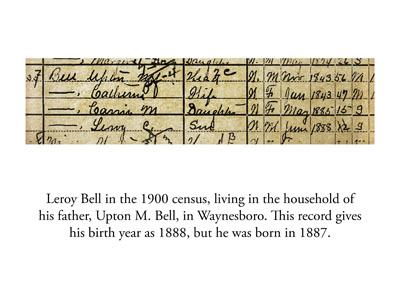 Daughter
57 Bell Upton M Head W M Nov 1843 56 M
—, Catherine Wife W F Jan 1843 47 M
—, Carrie M Daughter W F May 1885 15 S
—, Leroy C Son W M June 1888 12 S
Leroy Bell in the 1900 census, living in the household of
his father, Upton M. Bell, in Waynesboro. This record gives
his birth year as 1888, but he was born in 1887.